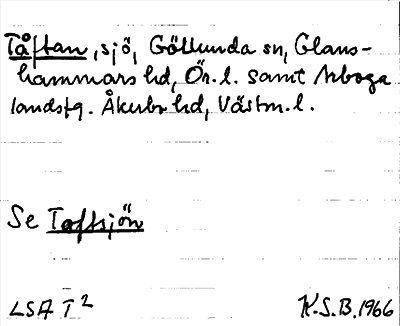 Tåftan, sjö, Götlunda sn, Glans-
hammars hd, Ör. l. samt Arboga
landsfg. Åkerbo hd, Västm. l.
Se Toftsjön
LSA T2
K.S.B. 1966